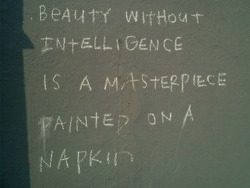 BEAUTY WITHOUT
INTELLIGENCE
IS A MASTERPIECE
PAINTED ON A
NAPKIN